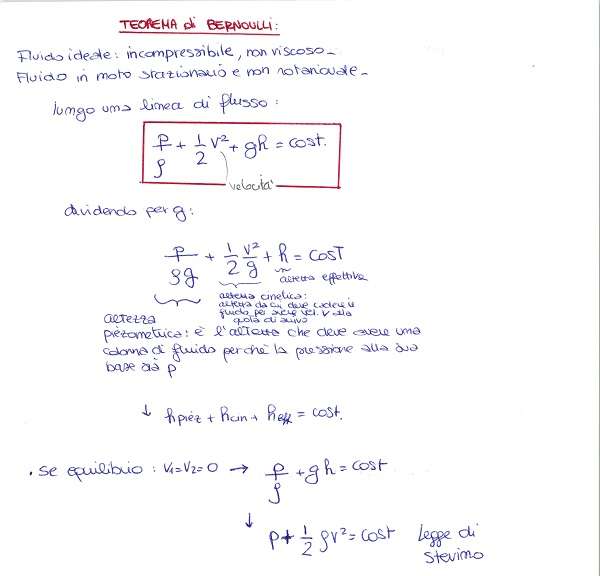 TEOREMA di BERNOULLI:
Fluido ideale: incompressibile, non viscoso.
Fluido in moto stazionario e non rotazionale.
lungo una linea di flusso:
p/ρ + 1/2 v² + gh = cost.
velocità
dividendo per g:
p/ρg + 1/2 v²/g + h = cost
altezza effettiva
altezza cinetica:
altezza da cui deve cadere il
fluido per avere vel. v alla
quota di arrivo
altezza
piezometrica: è l'altezza che deve avere una
colonna di fluido perchè la pressione alla sua
base sia p
↓ hpiez + hcin + heff = cost.
• se equilibrio: v₁=v₂=0 → p/ρ + gh = cost
↓
p + 1/2 ρv² = cost Legge di
Stevino